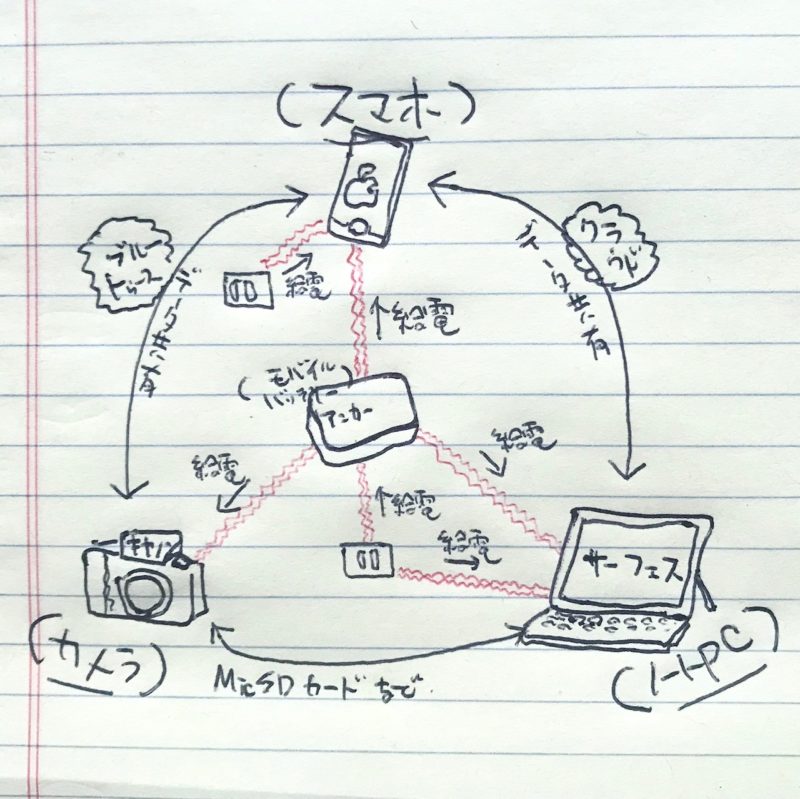 (スマホ)
ブルー
トゥース
データ共有
クラ
ウド
データ共有
給電
↑給電
(モバイル
バッテリー)
アンカー
給電
給電
↑給電
給電
キヤノン
サーフェス
(カメラ)
(ノートPC)
MicSDカードなどで